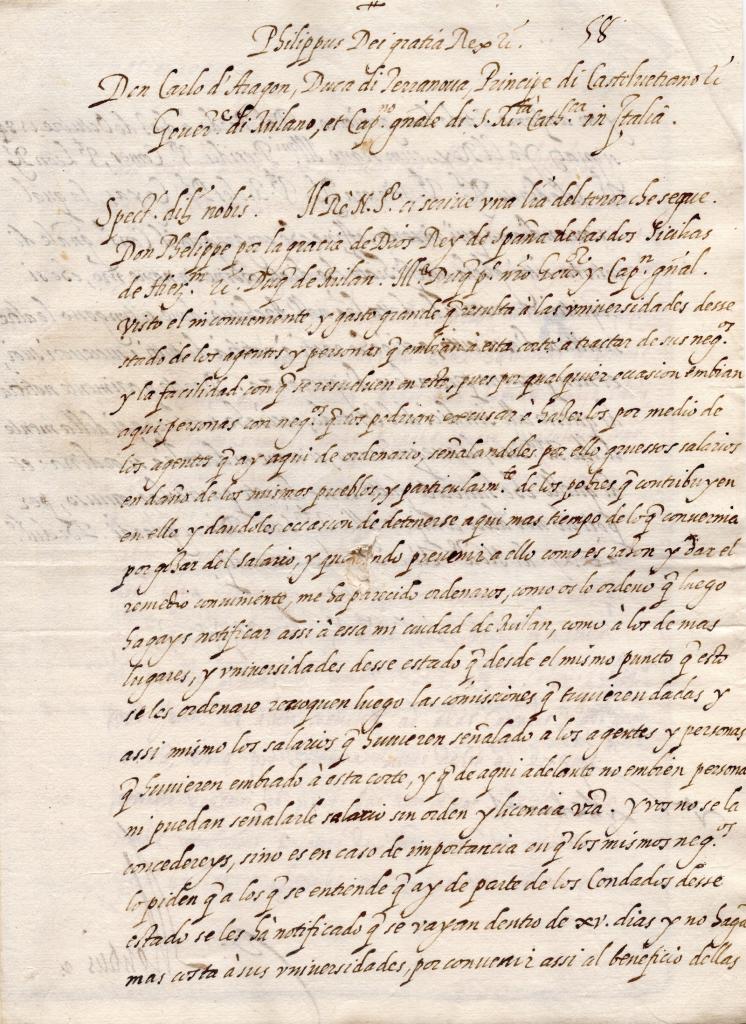 Philippus Dei gratia Rex &c. 58
Don Carlo d'Aragon, Duca di Terranova, Principe di Castelvetrano &c
Gover.re di Milano, et Cap.no gnale di S. M.tà Cath.ca in Italia.
Spect. dil. nobis. Il Rè N. S.re ci scrive una lra del tenor che segue.
Don Phelippe por la gracia de Dios Rey de Spaña de las dos Sicilias
de Hier.m &c. Duq̃ de Milan. Ill.e Duq̃ p.º nro Gov.or y Cap.n gñal.
Visto el inconveniente y gasto grande q̃ resulta à las universidades desse
stado de los agentes y personas q̃ embian à esta corte à tractar de sus neg.os
y la facilidad con q̃ se resuelven en esto, pues por qualquier occasion embian
aqui personas con neg.os q̃ los podrian escusar ò hazerlos por medio de
los agentes q̃ ay aqui de ordenario, señalandoles por ello gruessos salarios
en daño de los mismos pueblos, y particularm.te de los pobres q̃ contribuyen
en ello y dandoles occasion de detenerse aqui mas tiempo de lo q̃ convernia
por gozar del salario, y queriendo prevenir a ello como es razon y dar el
remedio conviniente, me ha parecido ordenaros, como os lo ordeno q̃ luego
hagays notificar assi à essa mi ciudad de Milan, como à los de mas
lugares, y universidades desse estado q̃ desde el mismo puncto q̃ esto
se les ordenare revoquen luego las comissiones q̃ tuvieren dadas y
assi mismo los salarios q̃ huvieren señalado à los agentes y personas
q̃ huvieren embiado à esta corte, y q̃ de aqui adelante no embien persona
ni puedan señalarle salario sin orden y licencia vrã. y vos no se la
concedereys, sino es en caso de importancia en q̃ los mismos neg.os
lo piden q̃ a los q̃ se entiende q̃ ay de parte de los Condados desse
estado se les hà notificado q̃ se vayan dentro de xv. dias y no hagã
mas costa à sus universidades, por convenir assi al beneficio dellas